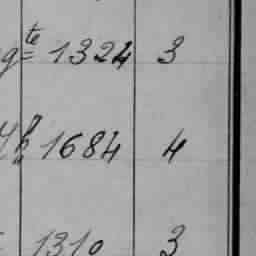 te 1324 3
1684 4
1310 3